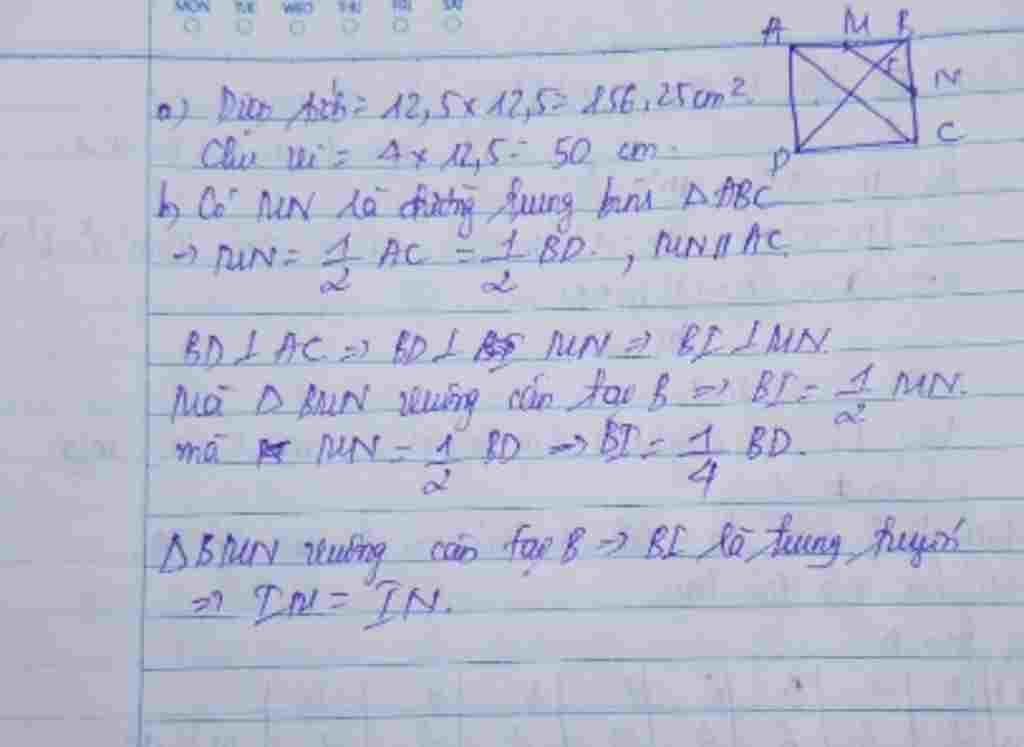 MON TUE WED THU FRI SAT
A M B
I N
D C
a) Diện tích = 12,5 x 12,5 = 156,25 cm².
Chu vi = 4 x 12,5 = 50 cm.
b) Có MN là đường trung bình △ ABC
→ MN = 1/2 AC = 1/2 BD. , MN // AC.
BD ⊥ AC ⇒ BD ⊥ MN ⇒ BI ⊥ MN.
Mà △ BMN vuông cân tại B ⇒ BI = 1/2 MN.
mà MN = 1/2 BD ⇒ BI = 1/4 BD.
△ BMN vuông cân tại B ⇒ BI là trung tuyến
⇒ IM = IN.